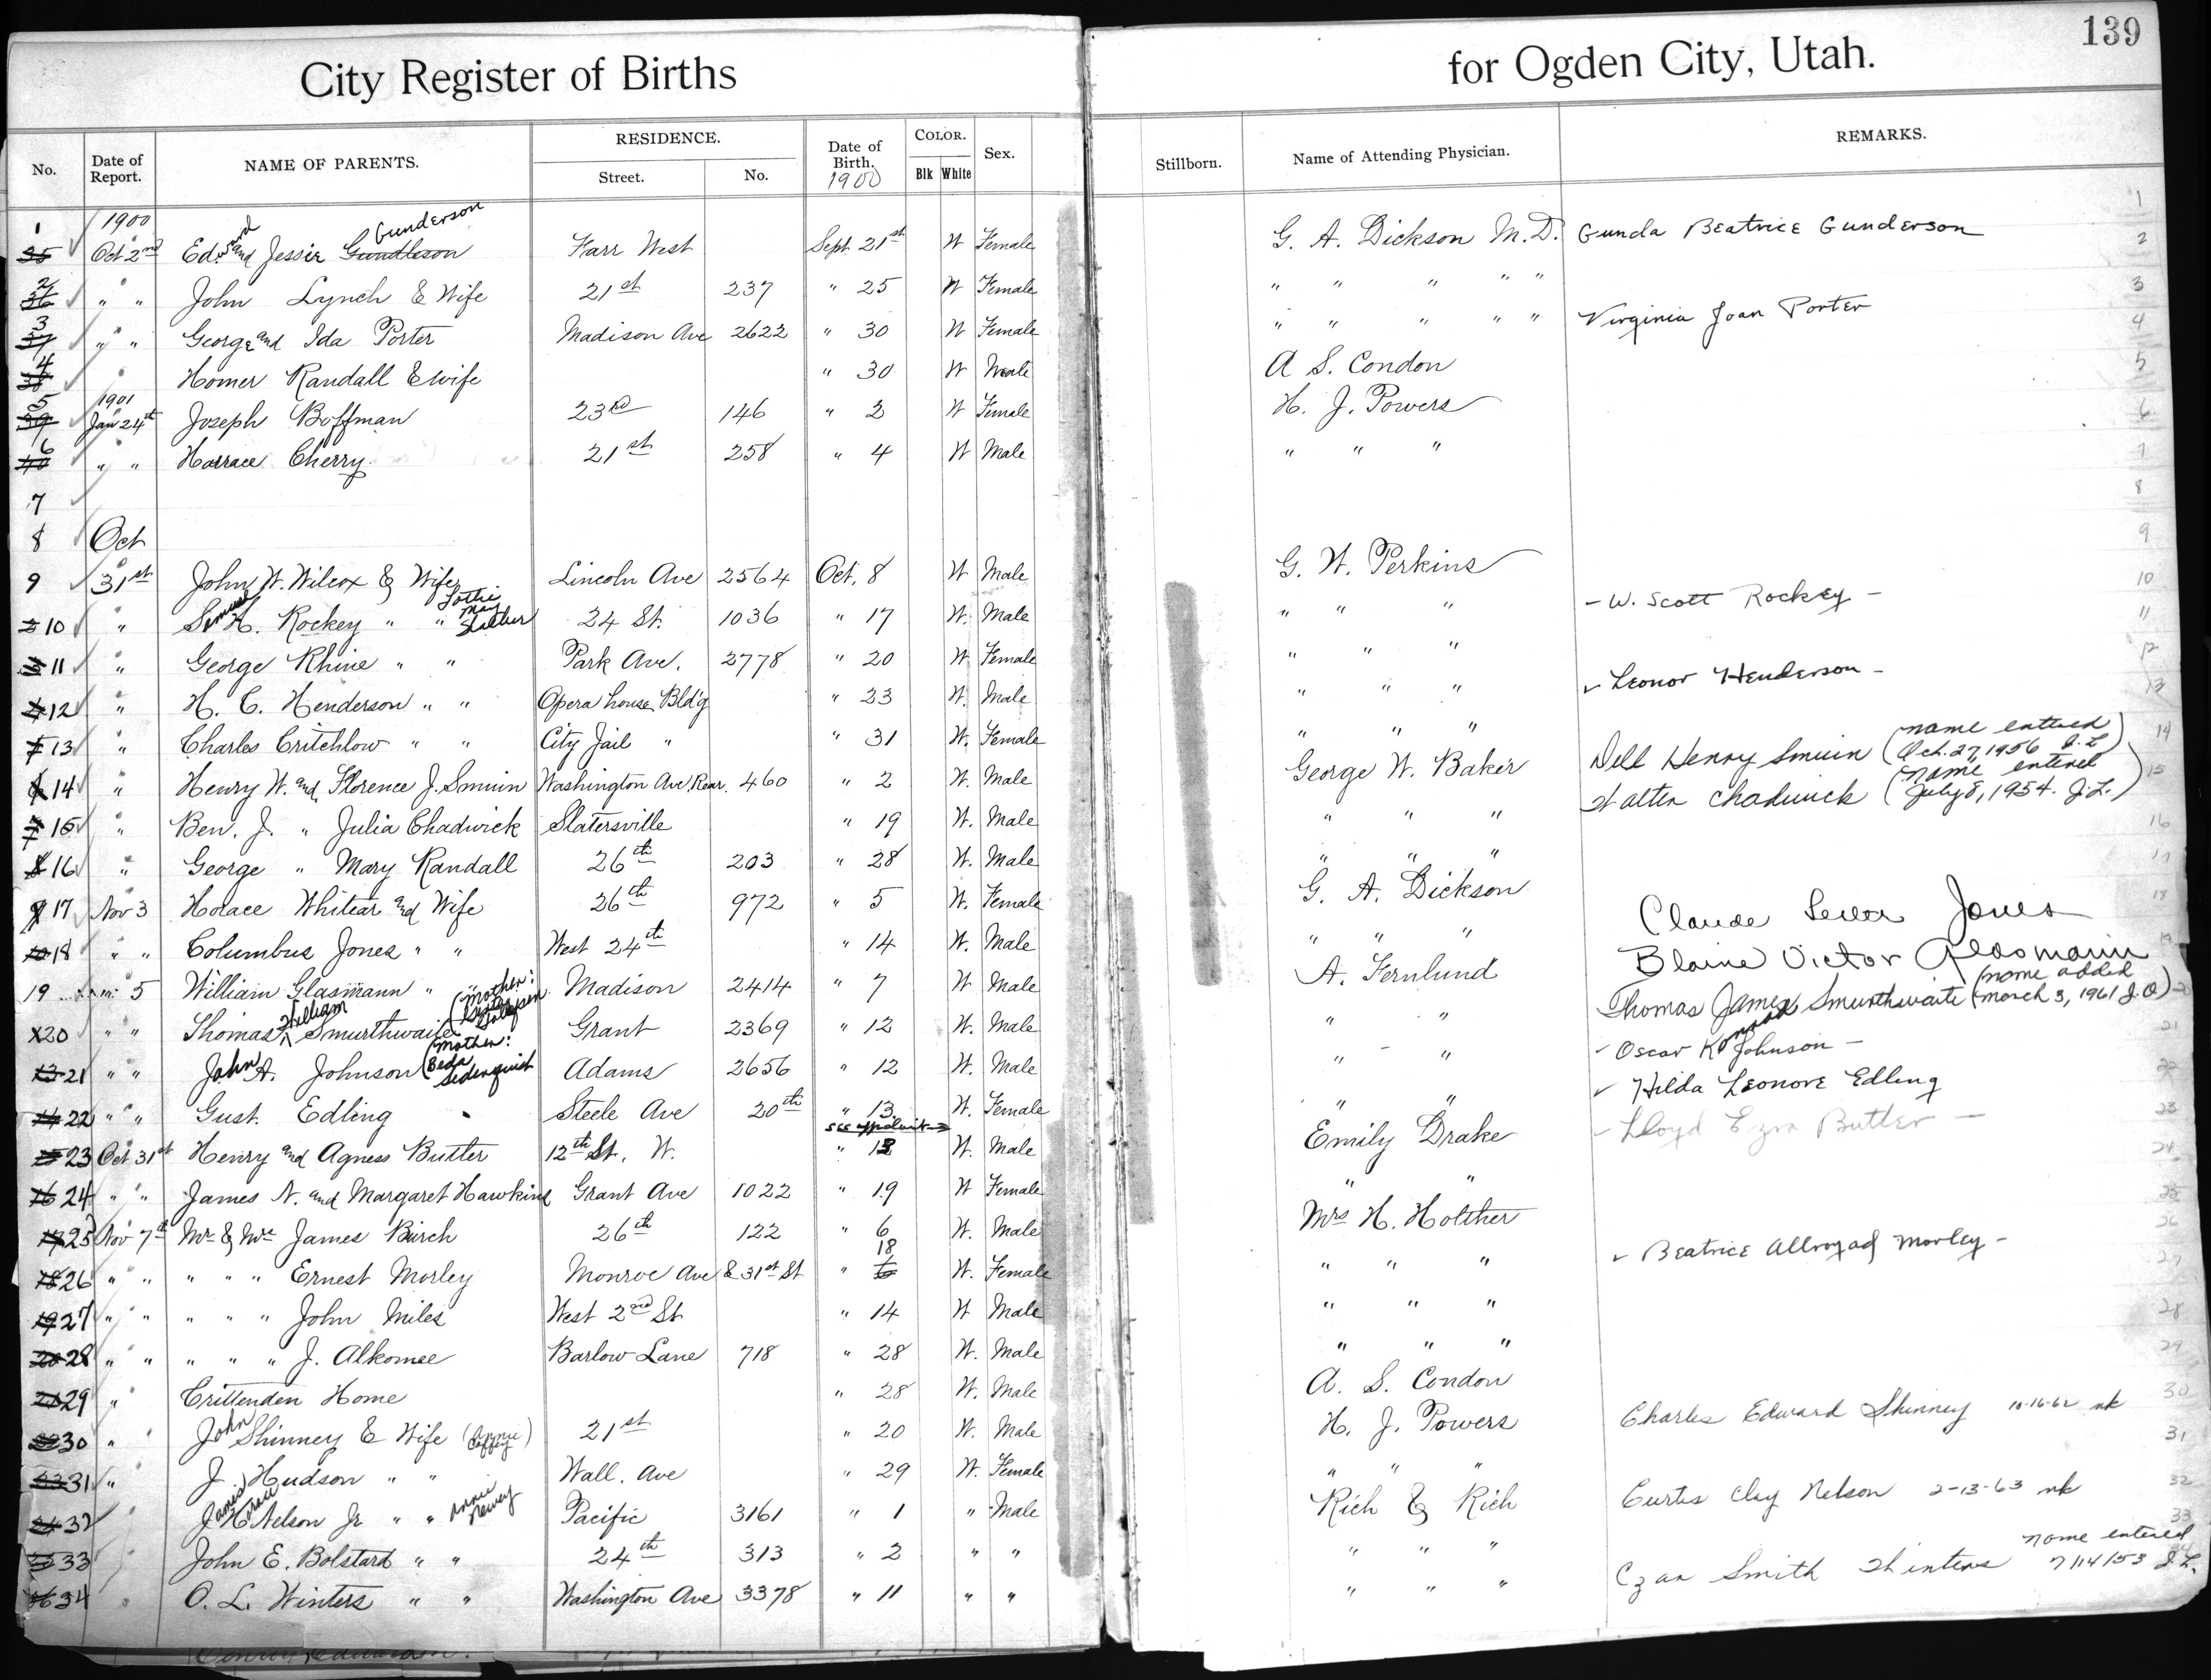 139
City Register of Births for Ogden City, Utah.
No. Date of Report. NAME OF PARENTS. RESIDENCE. Street. No. Date of Birth. 1900 COLOR. Blk White Sex. Stillborn. Name of Attending Physician. REMARKS.
1 1900
35 Oct 2nd Edward and Jessie Gundleson Gunderson Farr West Sept. 21st W Female G. A. Dickson M.D. Gunda Beatrice Gunderson
2 36 " " John Lynch & Wife 21st 237 " 25 W Female " " " " "
3 37 " " George and Ida Porter Madison Ave 2622 " 30 W Female " " " " " Virginia Joan Porter
4 38 " Homer Randall & wife " 30 W Male A S. Condon
5 39 1901 Jan 24th Joseph Boffman 23rd 146 " 2 W Female H. J. Powers
6 40 " " Horrace Cherry 21st 258 " 4 W Male " " "
7
8 Oct
9 31st John W. Wilcox & Wife Lincoln Ave 2564 Oct. 8 W Male G. W. Perkins
10 " H. Rockey " " Lottie May 24 St. 1036 " 17 W. Male " " " - W. Scott Rockey -
11 " George Rhine " " Park Ave. 2778 " 20 W. Female " " "
12 " H. C. Henderson " " Opera house Bld'g " 23 W. Male " " " Leonor Henderson -
13 " Charles Critchlow " " City Jail " " 31 W. Female " " "
14 " Henry W. and Florence J. Smuin Washington Ave. Rear. 460 " 2 W. Male George W. Baker Dell Henry Smuin (name entered Oct. 27, 1956 J.L)
15 " Ben. J. " Julia Chadwick Slatersville " 19 W. Male " " " Walter Chadwick (name entered July 8, 1954. J.L.)
16 " George " Mary Randall 26th 203 " 28 W. Male " " "
17 Nov 3 Horace Whitear and Wife 26th 972 " 5 W. Female G. A. Dickson
18 " " Columbus Jones " " West 24th " 14 W. Male " " " Claude Jones
19 5 William Glasmann " " (Mother: Madison 2414 " 7 W Male A. Fernlund Blaine Victor Glasmann
20 " " Thomas William Smurthwaite Grant 2369 " 12 W. Male " " Thomas James Smurthwaite (name added March 3, 1961 J.O)
21 " " John A. Johnson (Mother: Beda Sedenquist Adams 2656 " 12 W. Male " " Oscar Konrad Johnson -
22 " " Gust. Edling Steele Ave 20th " 13 W. Female " " Hilda Leonore Edling
23 Oct 31st Henry and Agness Butler 12th St. W. see affidavit " 13 W. Male Emily Drake - Lloyd Ezra Butler -
24 " " James N. and Margaret Hawkins Grant Ave 1022 " 19 W Female " "
25 Nov 7th Mr & Mrs James Birch 26th 122 " 6 W. Male Mrs H. Holther
26 " " " " " Ernest Morley Monroe Ave & 31st St " 18 6 W. Female " " " Beatrice Morley -
27 " " " " " John Miles West 2nd St " 14 W Male " " "
28 " " " " " J. Alkomee Barlow Lane 718 " 28 W. Male " " "
29 " Crittenden Home " 28 W. Male A. S. Condon
30 " John Shinney & Wife (Annie Coffey) 21st " 20 W. Male H. J. Powers Charles Edward Shinney 10-16-62 nk
31 " J. Hudson " " Wall. Ave " 29 W. Female " " "
32 James Horace Nelson Jr " " Annie Newey Pacific 3161 " 1 " Male Rich & Rich Curtis Clay Nelson 2-13-63 nk
33 John E. Bolstard " " 24th 313 " 2 " " " " "
34 O. L. Winters " " Washington Ave 3378 " 11 " " " " " Czar Smith Winters name entered 7/14/53 J.L.